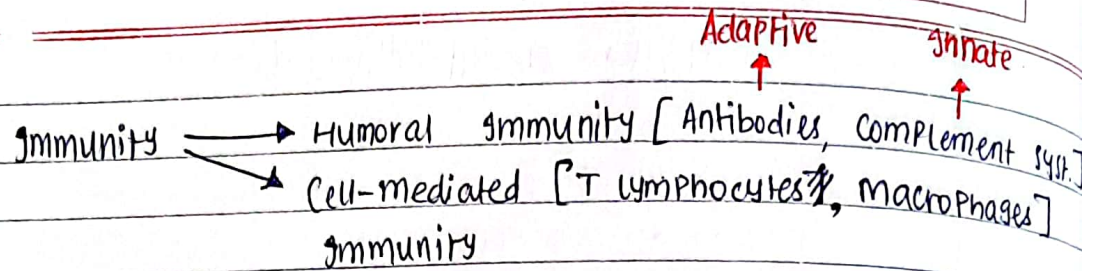 Adaptive Innate
Immunity → Humoral Immunity [Antibodies, Complement syst.]
→ Cell-mediated [T lymphocytes, Macrophages]
Immunity